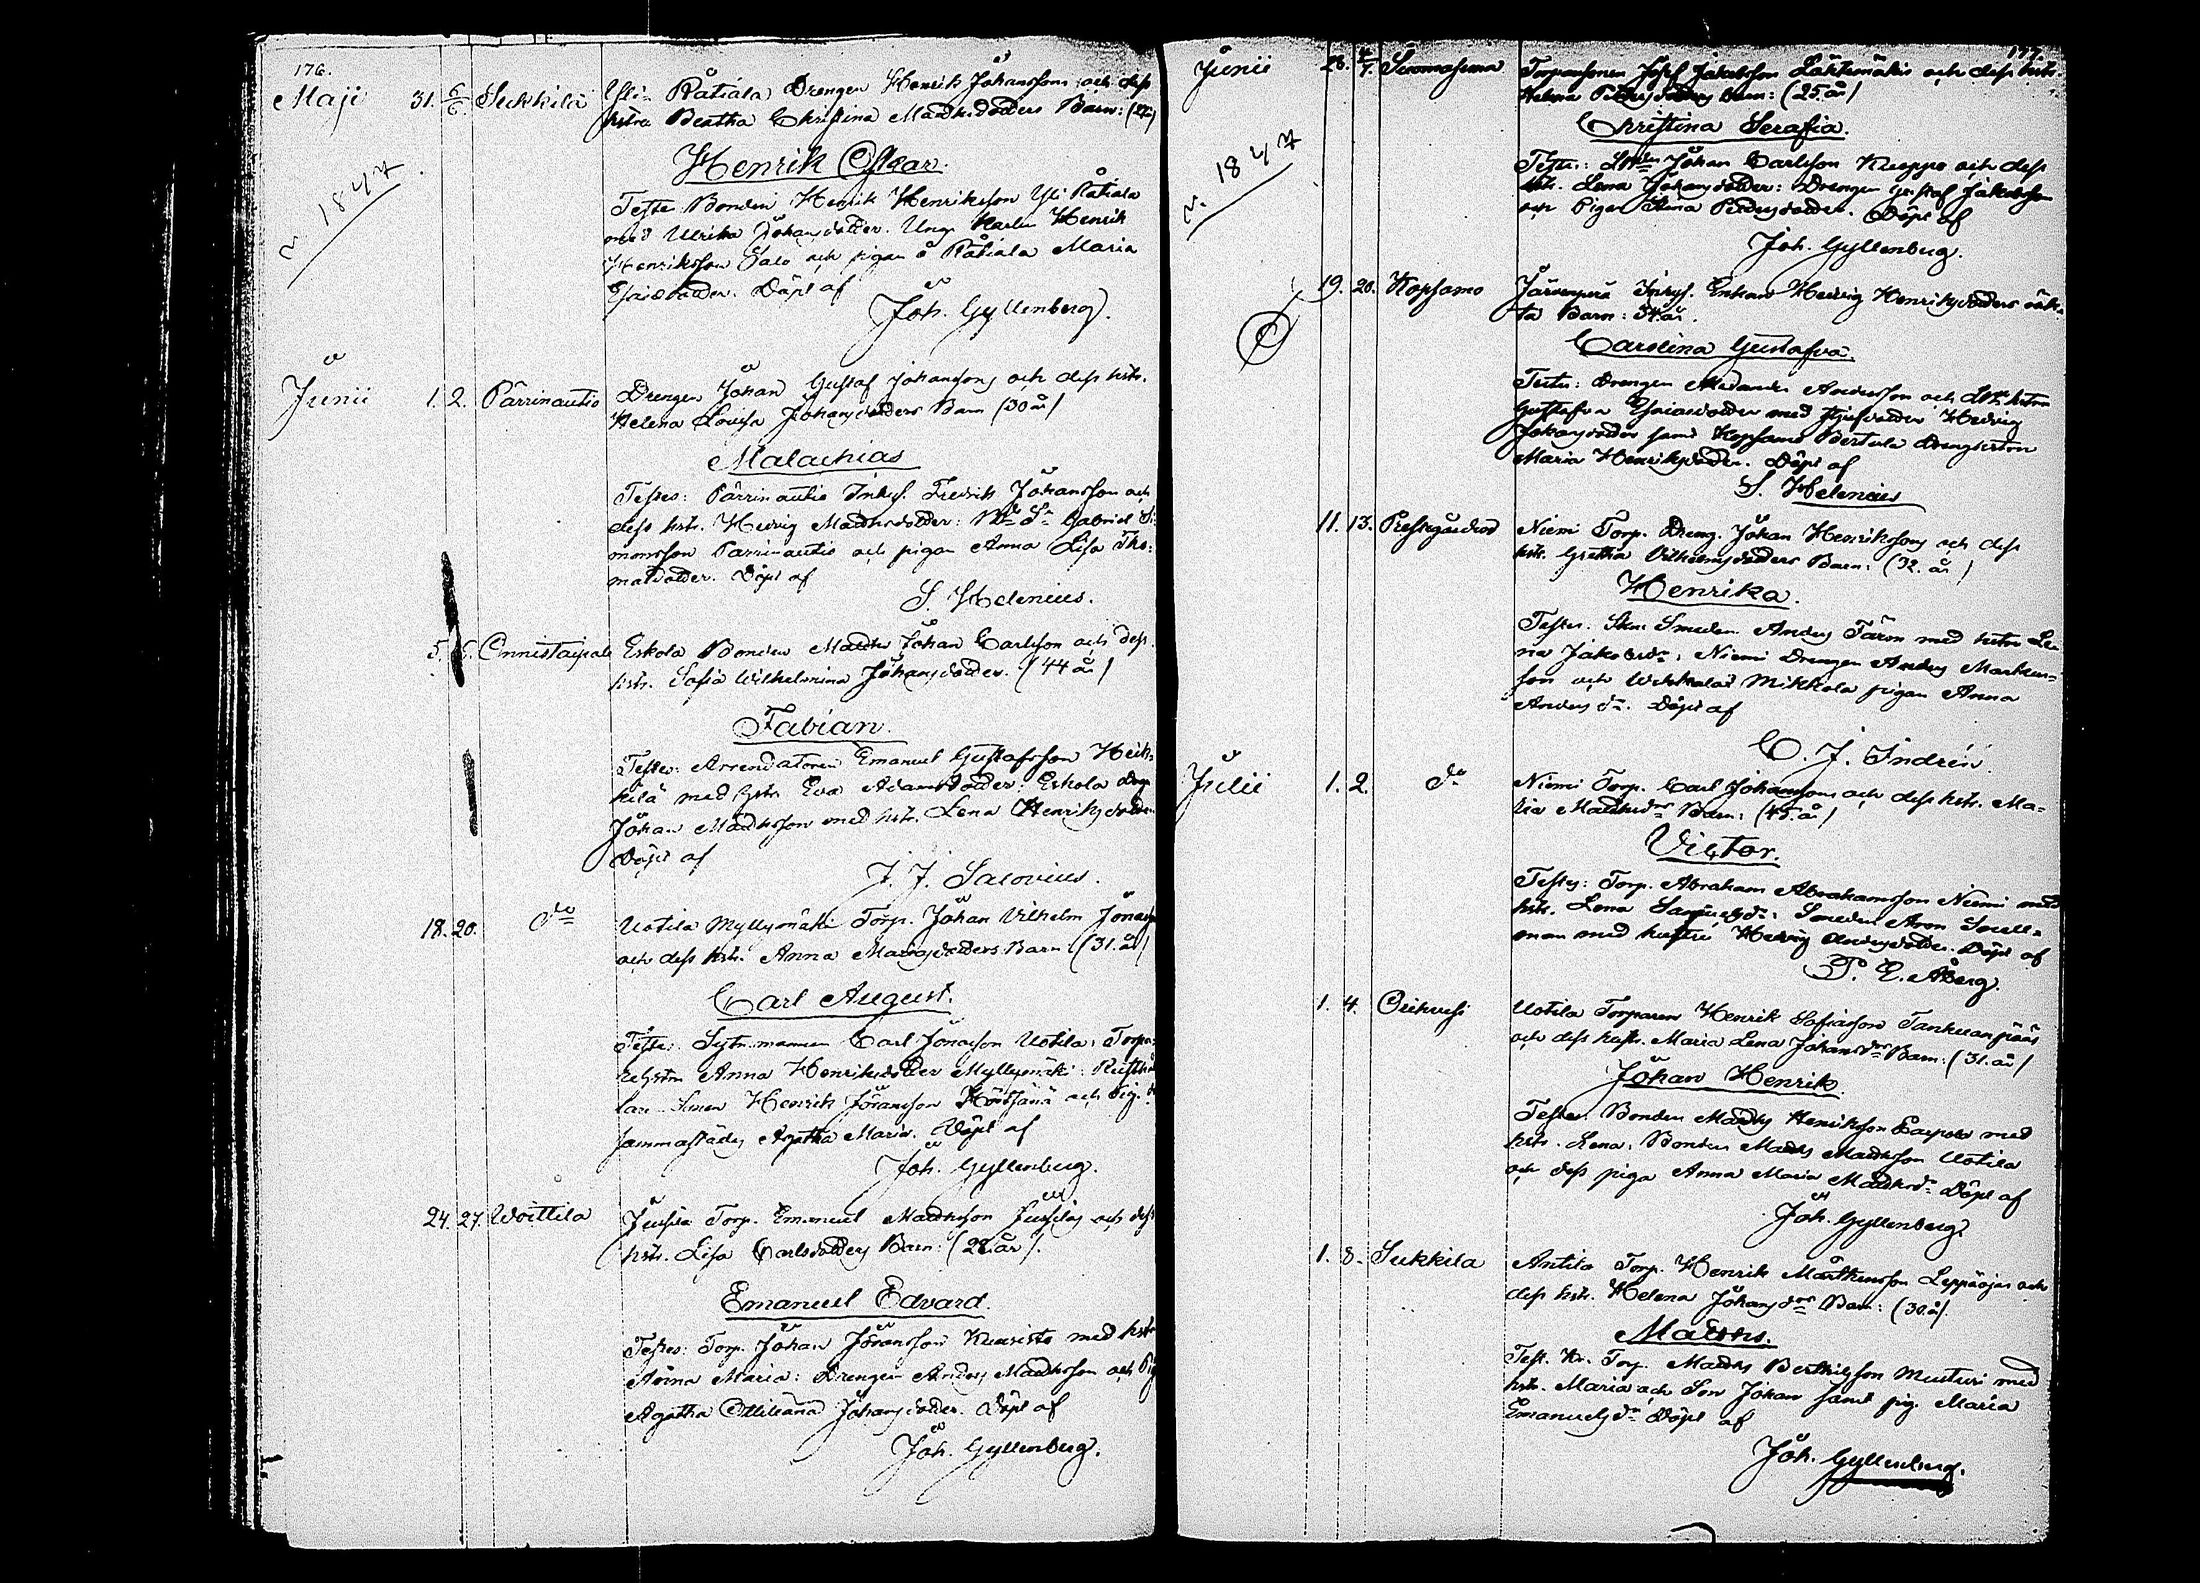 176.
Maji 31. 6/6. Sukkila Yli Rätiälä Drengen Henrik Johanssons och dess
hstru Beatha Christina Mattsdotters Barn: (27 år)
n. 1847
Henrik Oskar.
Testes: Bonden Henrik Henriksson Yli Rätiälä
med Ulrika Johansdotter. Ung Karlen Henrik
Henriksson Salo och pigan Rätiälä Maria
Esaiædotter. Döpt af
Joh. Gyllenberg.
Junii 1. 2. Pärrinautio Drengen Johan Gustaf Johanssons och dess hstr.
Helena Lovisa Johansdotters Barn (30 år)
Malachias
Testes: Pärrinautio Inhys. Fredrik Johansson och
dess hstr. Hedvig Mattsdotter: Gabriel Si
monsson Pärrinautio och pigan Anna Lisa Tho:
masdotter. Döpt af
S. Helenius.
5. 6. Onnistaipale Eskola Bonden Matts Johan Carlsson och dess
hstr. Sofia Wilhelmina Johansdotter. (44 år)
Fabian.
Testes: Arrendatoren Emanuel Gustafsson Heik-
kilä med hstr Eva Adamsdotter: Eskola
Johan Mattsson med hstr. Lena Henriksdotter
Döpt af
J. J. Salovius.
18. 20. do Uotila Myllymäki Torp. Johan Vilhelm
och dess hstr. Anna Mattsdotters Barn (31. år)
Carl August.
Testes: Carl Jonasson Uotila: Torpa-
Anna Henriksdotter Myllymäki:
Henrik Jöransson och Pig.
sammastädes Agatha Maria. Döpt af
Joh. Gyllenberg.
24. 27. Woittila Jussila Torp. Emanuel Mattsson Jussilas och dess
hstr. Lisa Carlsdotters Barn: (28. år).
Emanuel Edvard.
Testes: Torp. Johan Jöransson Kuusisto med hstr
Anna Maria: Drengen Anders Mattsson och Pig
Agatha Ottiliana Johansdotter. Döpt af
Joh. Gyllenberg.
177.
Junii 28. 4/7. Suomasuma Torparsonen Josef Jakobsson Lähtemäkis och dess hstr.
Helena Barn: (25. år)
n. 1847
Christina Serafia.
Testes: Johan Carlsson Knuppe och dess
hstr. Lena Johansdotter: Drengen Gustaf Jakobsson
och Pigan Stina Pettersdotter. Döpt af
Joh. Gyllenberg.
19. 20. Kopsamo Järvenpää Inhys. Enkan Hedvig Henriksdotters oäk-
ta Barn: 34. år.
Carolina Gustafva.
Testes: Drengen Andersson och hstru
Gustafva Esaiædotter med Hedvig
Johansdotter samt Kopsamo Bertula
Maria Henriksdotter. Döpt af
S. Helenius
11. 13. Prestegården Niemi Torp. Dreng. Johan Henrikssons och dess
hstr. Gretha Vilhelmsdotters Barn: (32. år)
Henrika.
Testes: Smeden Anders Färm med hstru Le-
na Jakobsdr: Niemi Drengen Anders Markus-
son och Mikkola pigan Anna
Andersdr. Döpt af
C. J. Indrén.
Julii 1. 2. do Niemi Torp. Carl Johanssons och dess hstr. Ma-
ria Mattsdrs Barn: (45. år)
Victor.
Testes: Torp. Abraham Abrahamsson Niemi med
hstr. Lena Samuelsdr: Smeden Aron Snell-
man med hustru Hedvig Andersdotter. Döpt af
P. E. Åberg.
1. 4. Oukursi Uotila Torparen Henrik Tankuanpääs
och dess hustr. Maria Lena Johansdrs Barn: (31. år)
Johan Henrik.
Testes: Bonden Matts Henriksson med
hstr. Lena: Bonden Matts Mattsson Uotila
och dess piga Anna Maria Mattsdr Döpt af
Joh. Gyllenberg.
1. 8. Sukkila Antila Torp. Henrik Leppäojas och
dess hstr. Helena Johansdrs Barn: (30. år).
Matths.
Test. Torp. Matts med
hstr. Maria och Son Johan samt pig. Maria
Emanuelsdr Döpt af
Joh. Gyllenberg.